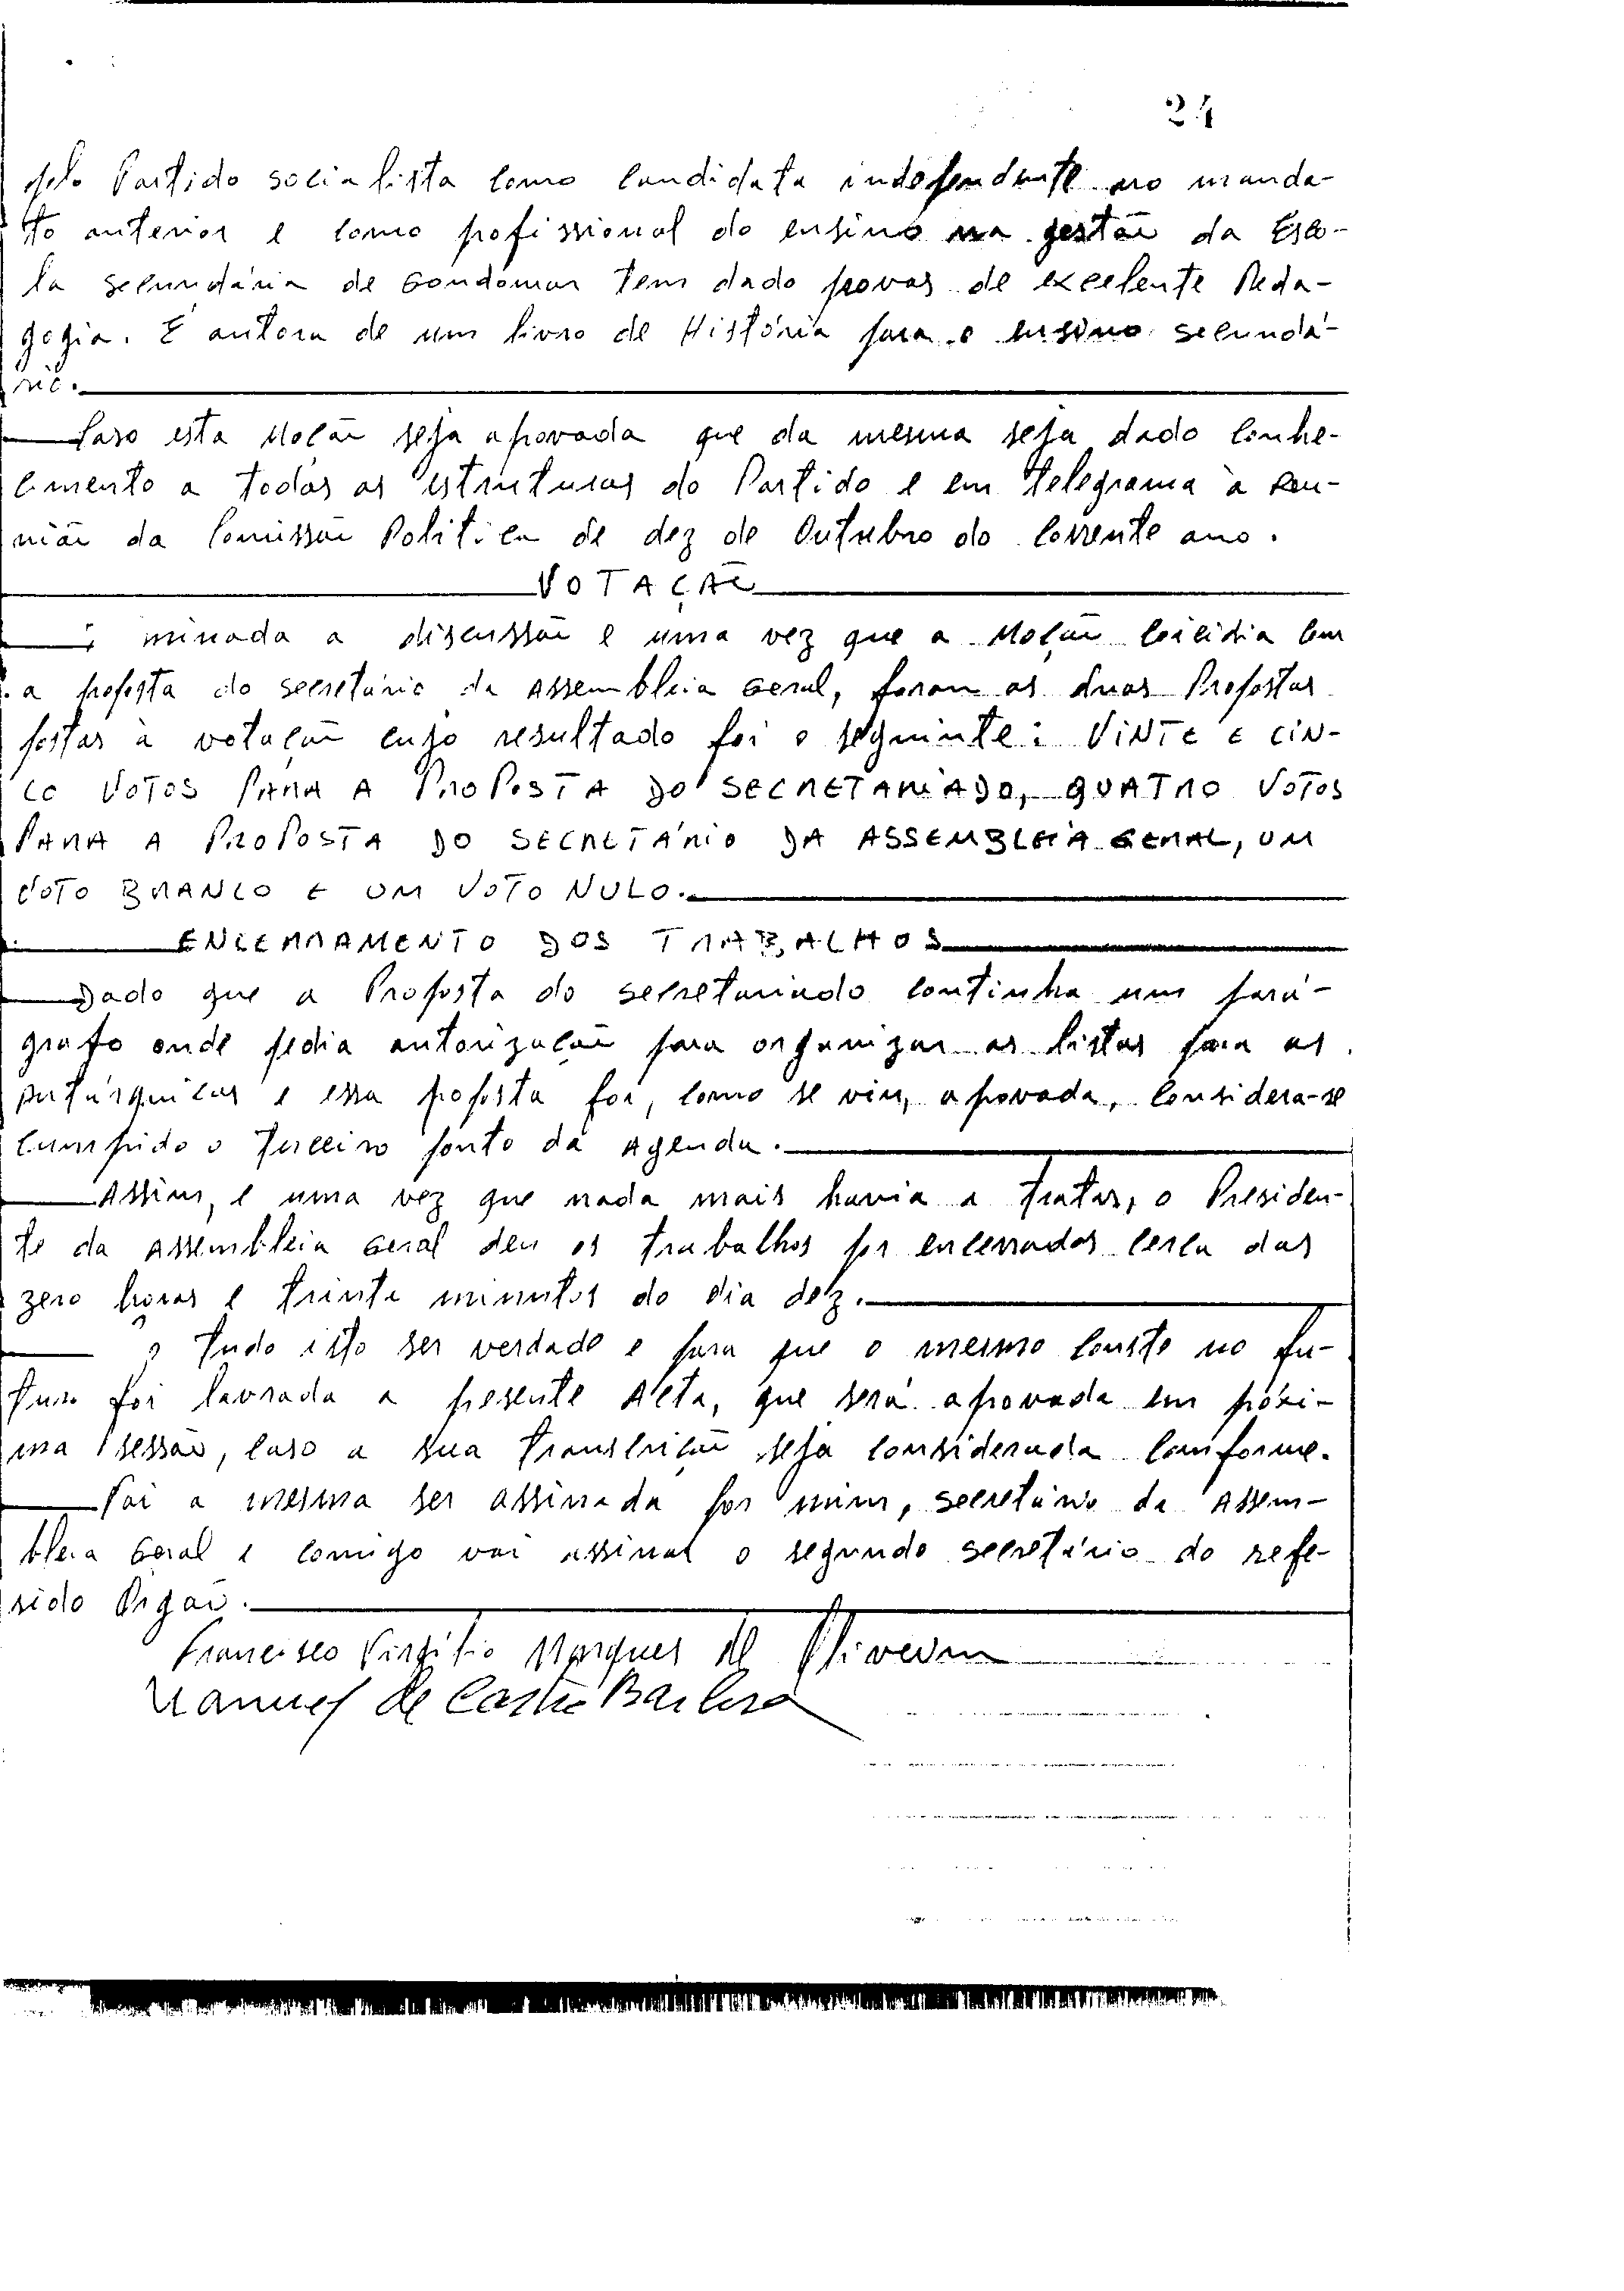 24
pelo Partido socialista como candidata independente no manda-
to anterior e como pofissional do ensino na gestão da Esco-
la secundária de Gondomar tem dado provas de excelente Peda-
gogia. É autora de um livro de História para o ensino secundá-
rio.
Caso esta Moção seja aprovada que da mesma seja dado conhe-
cimento a todas as estruturas do Partido e em telegrama à reu-
nião da Comissão Politica de dez de Outubro do corrente ano.
VOTAÇÃO
minada a discussão e uma vez que a Moção coicidia com
a proposta do secretário da Assembleia Geral, foram as duas Propostas
postas à votação cujo resultado foi o seguinte: VINTE E CIN-
CO VOTOS PARA A PROPOSTA DO SECRETARIADO, QUATRO VOTOS
PARA A PROPOSTA DO SECRETÁRIO DA ASSEMBLEIA GERAL, UM
VOTO BRANCO E UM VOTO NULO.
ENCERRAMENTO DOS TRABALHOS
Dado que a Proposta do secretariado continha um pará-
grafo onde pedia autorização para organizar as listas para as
autárquicas e essa proposta foi, como se viu, aprovada, considera-se
cumprido o terceiro ponto da Agenda.
Assim, e uma vez que nada mais havia a tratar, o Presiden-
te da Assembleia Geral deu os trabalhos por encerrados cerca das
zero horas e trinta minutos do dia dez.
Tudo isto ser verdade e para que o mesmo conste no fu-
turo foi lavrada a presente Acta, que será aprovada em próxi-
ma sessão, caso a sua transcrição seja considerada comforme.
Vai a mesma ser assinada por mim, secretário da Assem-
bleia Geral e comigo vai assinar o segundo secretário do refe-
rido Orgão.
Francisco Virgilio Marques de Oliveira
Manuel de Castro Barbosa